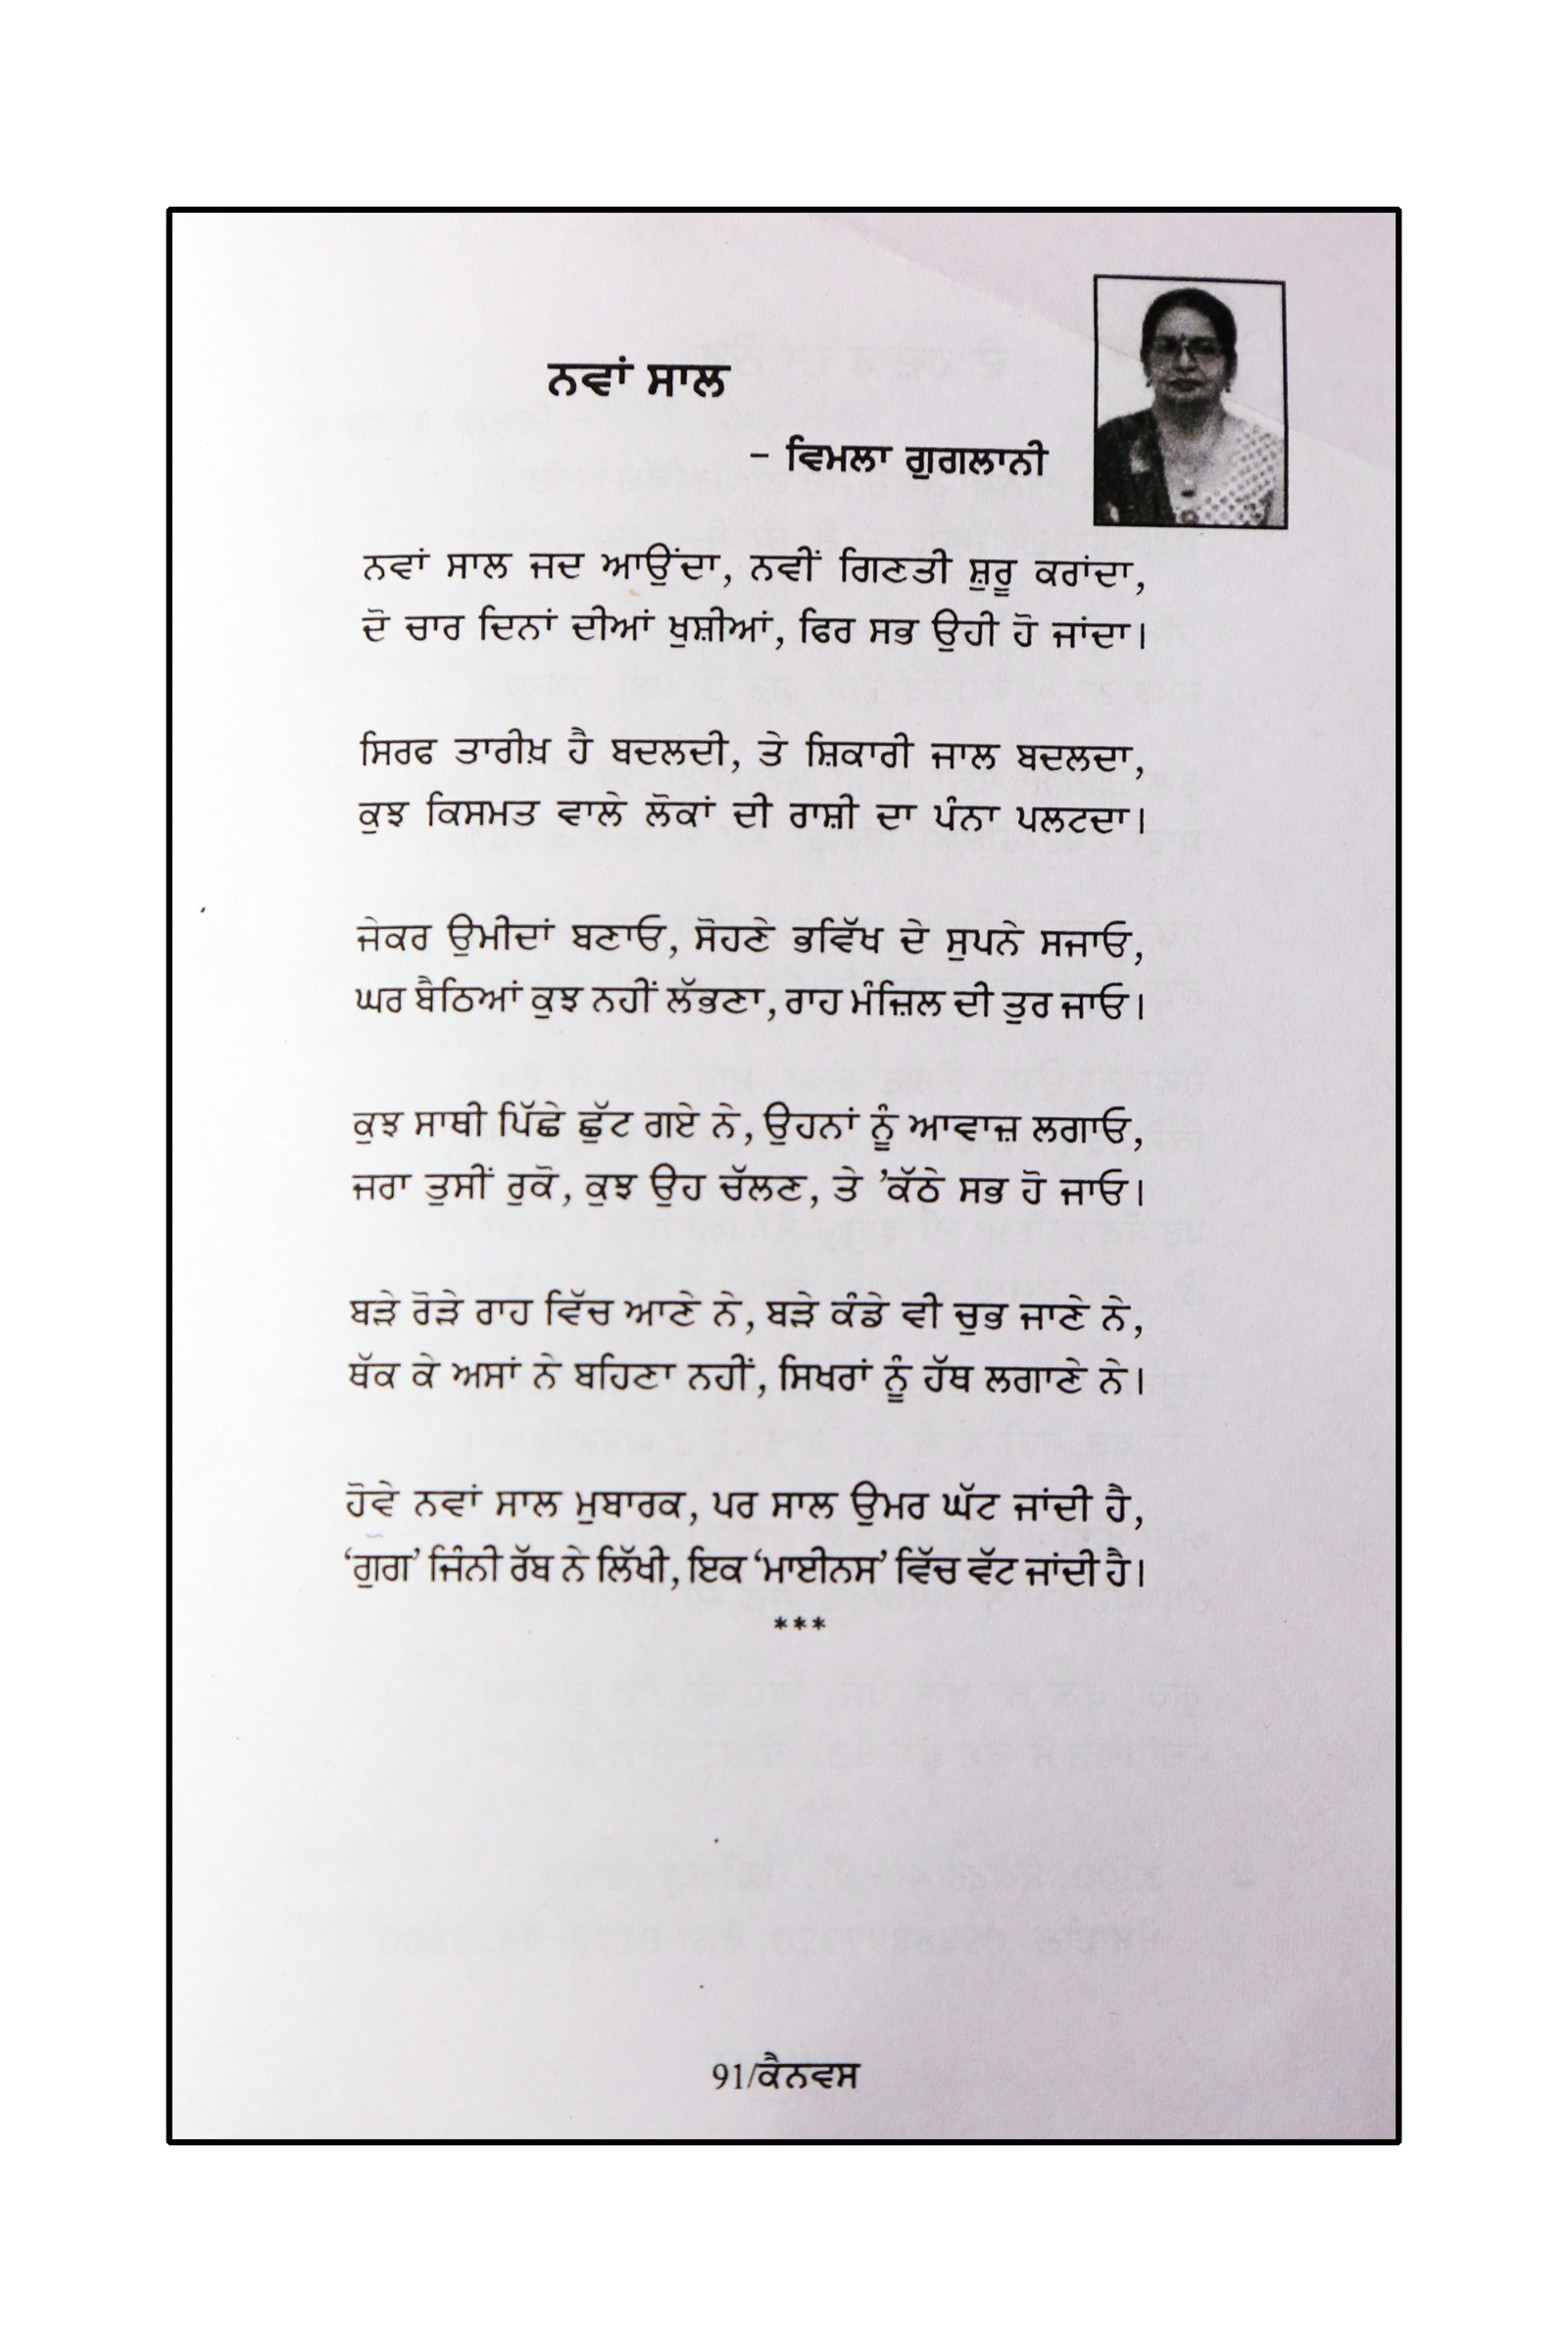 ਨਵਾਂ ਸਾਲ
– ਵਿਮਲਾ ਗੁਗਲਾਨੀ
ਨਵਾਂ ਸਾਲ ਜਦ ਆਉਂਦਾ, ਨਵੀਂ ਗਿਣਤੀ ਸ਼ੁਰੂ ਕਰਾਂਦਾ,
ਦੋ ਚਾਰ ਦਿਨਾਂ ਦੀਆਂ ਖੁਸ਼ੀਆਂ, ਫਿਰ ਸਭ ਉਹੀ ਹੋ ਜਾਂਦਾ।
ਸਿਰਫ ਤਾਰੀਖ਼ ਹੈ ਬਦਲਦੀ, ਤੇ ਸ਼ਿਕਾਰੀ ਜਾਲ ਬਦਲਦਾ,
ਕੁਝ ਕਿਸਮਤ ਵਾਲੇ ਲੋਕਾਂ ਦੀ ਰਾਸ਼ੀ ਦਾ ਪੰਨਾ ਪਲਟਦਾ।
ਜੇਕਰ ਉਮੀਦਾਂ ਬਣਾਓ, ਸੋਹਣੇ ਭਵਿੱਖ ਦੇ ਸੁਪਨੇ ਸਜਾਓ,
ਘਰ ਬੈਠਿਆਂ ਕੁਝ ਨਹੀਂ ਲੱਭਣਾ, ਰਾਹ ਮੰਜ਼ਿਲ ਦੀ ਤੁਰ ਜਾਓ।
ਕੁਝ ਸਾਥੀ ਪਿੱਛੇ ਛੁੱਟ ਗਏ ਨੇ, ਉਹਨਾਂ ਨੂੰ ਆਵਾਜ਼ ਲਗਾਓ,
ਜਰਾ ਤੁਸੀਂ ਰੁਕੋ, ਕੁਝ ਉਹ ਚੱਲਣ, ਤੇ ’ਕੱਠੇ ਸਭ ਹੋ ਜਾਓ।
ਬੜੇ ਰੋੜੇ ਰਾਹ ਵਿੱਚ ਆਣੇ ਨੇ, ਬੜੇ ਕੰਡੇ ਵੀ ਚੁਭ ਜਾਣੇ ਨੇ,
ਥੱਕ ਕੇ ਅਸਾਂ ਨੇ ਬਹਿਣਾ ਨਹੀਂ, ਸਿਖਰਾਂ ਨੂੰ ਹੱਥ ਲਗਾਣੇ ਨੇ।
ਹੋਵੇ ਨਵਾਂ ਸਾਲ ਮੁਬਾਰਕ, ਪਰ ਸਾਲ ਉਮਰ ਘੱਟ ਜਾਂਦੀ ਹੈ,
‘ਗੁਗ’ ਜਿੰਨੀ ਰੱਬ ਨੇ ਲਿੱਖੀ, ਇਕ ‘ਮਾਈਨਸ’ ਵਿੱਚ ਵੱਟ ਜਾਂਦੀ ਹੈ।
***
91/ਕੈਨਵਸ